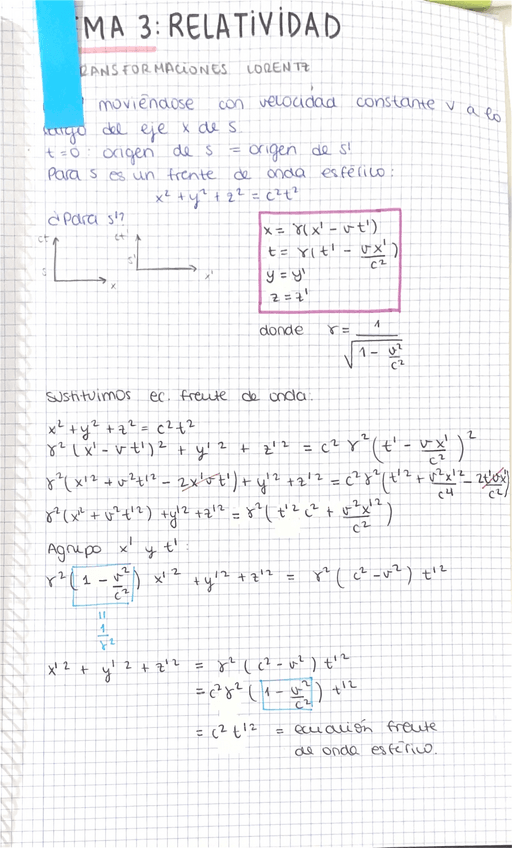 MA 3: RELATIVIDAD
RANSFORMACIONES LORENTZ
moviéndose con velocidad constante v a lo
largo del eje x de s.
t=0: origen de s = origen de s'
Para s es un frente de onda esférico:
x² + y² + z² = c²t²
¿Para s'?
ct
s
x
ct'
s'
x'
x = γ(x' - vt')
t = γ(t' - vx'/c²)
y = y'
z = z'
donde γ = 1/√(1 - v²/c²)
Sustituimos ec. frente de onda:
x² + y² + z² = c²t²
γ²(x' - vt')² + y'² + z'² = c²γ²(t' - vx'/c²)²
γ²(x'² + v²t'² - 2x'vt') + y'² + z'² = c²γ²(t'² + v²x'²/c⁴ - 2t'vx'/c²)
γ²(x'² + v²t'²) + y'² + z'² = γ²(t'²c² + v²x'²/c²)
Agrupo x' y t':
γ²(1 - v²/c²) x'² + y'² + z'² = γ²(c² - v²) t'²
=
1/γ²
x'² + y'² + z'² = γ²(c² - v²) t'²
= c²γ²(1 - v²/c²) t'²
= c²t'² = ecuación frente
de onda esférico.